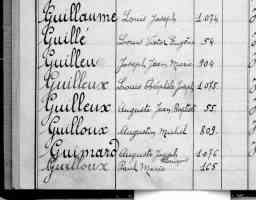 Guillaume Louis Joseph 1074
Guillé Louis Victor Eugène 54
Guilleu Joseph Jean Marie 904
Guilleux Louis Baptiste Joseph 1075
Guilleux Auguste Jean Baptiste 55
Guilloux Augustin Michel 809
Guimard Auguste Joseph 1076
Guilloux Paul Marie 165